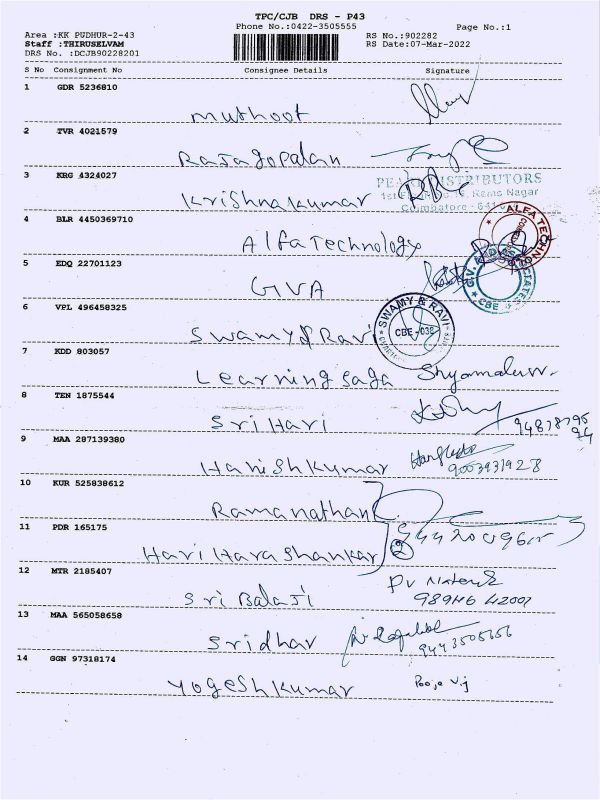 TPC/CJB DRS - P43
Phone No.:0422-3505555
Page No.:1
Area :KK PUDHUR-2-43
RS No.:902282
Staff :THIRUSELVAM
RS Date:07-Mar-2022
DRS No. :DCJB90228201
S No Consignment No Consignee Details Signature
1 GDR 5236810
Muthoot
2 TVR 4021579
Rajagopalan
3 KRG 4324027
Krishnakumar
PEARL DISTRIBUTORS
Rams Nagar
Coimbatore - 641
4 BLR 4450369710
Alfa Technology
ALFA TECHNO
5 EDQ 22701123
GIVA
CBE
6 VPL 496458325
Swamy & Ravi
SWAMY & RAVI
CBE - 038
7 KDD 803057
Learning Saga
8 TEN 1875544
Sri Hari
9 MAA 287139380
Harish Kumar
9003931928
10 KUR 525838612
Ramanathan
11 PDR 165175
Hari Hara Shankar
2
12 MTR 2185407
Sri Balaji
13 MAA 565058658
Sridhar
14 GGN 97318174
Yogesh Kumar